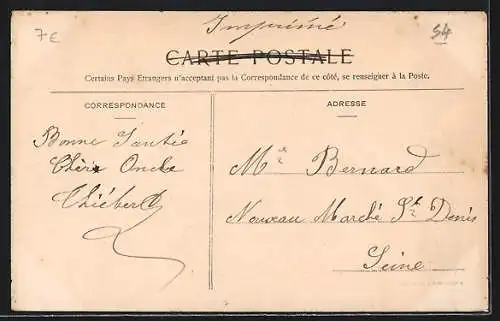 7€
Imprimé
54
CARTE POSTALE
Certains Pays Etrangers n'acceptant pas la Correspondance de ce côté, se renseigner à la Poste.
CORRESPONDANCE
Bonne Santée
Chèrs Oncle
Thiébert
ADRESSE
Mr Bernard
Nouveau Marché St Denis
Seine